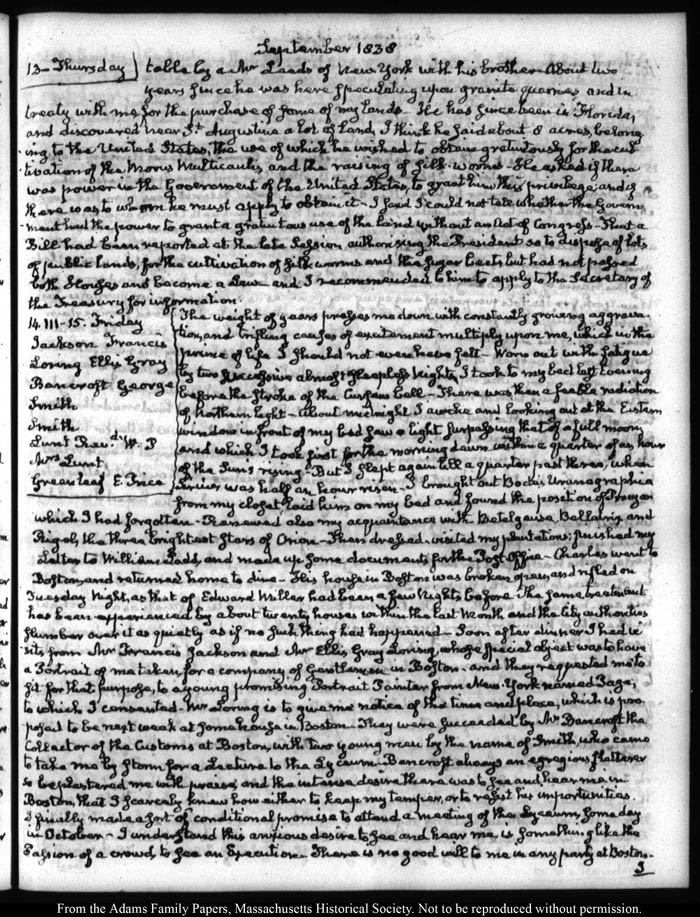 September 1838
13 - Thursday
table by a Mr Leeds of New York with his brother. About two
years since he was here speculating upon granite quarries and in
treaty with me for the purchase of some of my lands - He has since been in Florida,
and discovered near St Augustine a lot of Land, I think he said about 8 acres, belong
ing to the United States, the use of which he wished to obtain gratuitously for the cul
tivation of the Morus Multicaulis, and the raising of silk-worms - He asked if there
was power in the Government of the United States, to grant him this privilege; and if
there was to whom he must apply to obtain it - I said I could not tell whether the Govern
ment had the power to grant a gratuitous use of the Land without an Act of Congress - That a
Bill had been reported at the late Session authorising the President so to dispose of lots
of public lands, for the cultivation of silk worms and the sugar beet, but had not passed
both Houses and become a Law - and I recommended to him to apply to the Secretary of
the Treasury for information.
14. III-15. Friday
Jackson Francis
Loring Ellis Gray
Bancroft George
Smith
Smith
Lunt Revd W. P
Mrs Lunt
Greenleaf E. Price
The weight of years presses me down with constantly growing aggrava
tion, and trifling causes of excitement multiply upon me, which in the
prime of life I should not even have felt - Worn out with fatigue
by two successive almost sleepless Nights, I took to my bed last Evening
before the stroke of the Curfew bell - There was then a feeble radiation
of Northern Light - About midnight I awoke and looking out at the Eastern
window in front of my bed saw a light surpassing that of a full moon,
and which I took first for the morning dawn within a quarter of an hour
of the Sun's rising. But I slept again till a quarter past three, when
Sirius was half an hour risen - I brought out Bode's Uranographia
from my closet, laid him on my bed and found the position of Procyon
which I had forgotten - Renewed also my acquaintance with Betelgeuse, Bellatrix and
Rigel, the three brightest stars of Orion - Then dressed - visited my plantations; finished my
Letter to William Ladd, and made up some documents for the Post Office - Charles went to
Boston, and returned home to dine - His house in Boston was broken open, and rifled on
Tuesday Night, as that of Edward Miller had been a few Nights before. The same treatment
has been experienced by about twenty houses within the last Month and the City authorities
slumber over it as quietly as if no such thing had happened - Soon after dinner I had vi
sits from Mr Francis Jackson and Mr Ellis Gray Loring, whose special object was to have
a Portrait of me taken, for a company of Gentlemen in Boston - and they requested me to
sit for that purpose, to a young promising Portrait Painter from New-York named Page,
to which I consented - Mr Loring is to give me notice of the time and place, which is pro
posed to be next week at some house in Boston - They were succeeded by Mr Bancroft the
Collector of the Customs at Boston, with two young men by the name of Smith, who came
to take me by storm for a Lecture to the Lyceum - Bancroft always an egregious flatterer
so beplastered me with praise, and the intense desire there was to see and hear me in
Boston, that I scarcely knew how either to keep my temper, or to resist his importunities.
I finally made a sort of conditional promise to attend a meeting of the Lyceum some day
in October - I understand this anxious desire to see and hear me, is something like the
Passion of a crowd to see an Execution - There is no good will to me in any party at Boston -
From the Adams Family Papers, Massachusetts Historical Society. Not to be reproduced without permission.